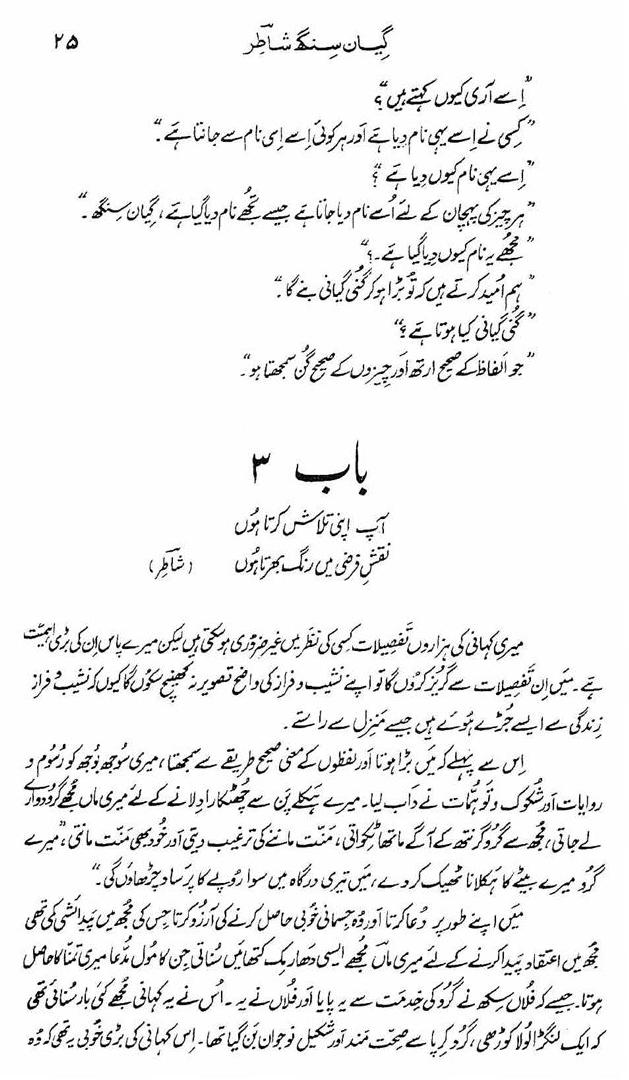 گیان سنگھ شاطر ۲۵
"اِسے آری کیوں کہتے ہیں"؟
"کسی نے اِسے یہی نام دِیا ہے اَور ہر کوئی اِسے اِسی نام سے جانتا ہے۔"
"اِسے یہی نام کیوں دِیا ہے"؟
"ہر چیز کی پہچان کے لئے اُسے نام دیا جاتا ہے جیسے تجُھے نام دیا گیا ہے، گیان سِنگھ۔"
"مجُھے یہ نام کیوں دِیا گیا ہے۔؟"
"ہم اُمید کرتے ہیں کہ تُو بڑا ہو کر گُنی گیانی بنے گا۔"
"گُنی گیانی کیا ہوتا ہے؟"
"جو اَلفاظ کے صحیح ارتھ اَور چِیزوں کے صحیح گُن سمجھتا ہو"۔
باب ۳
آپ اپنی تلاش کرتا ہُوں
نقشِ فرضی میں رنگ بھرتا ہُوں (شاطِر)
میری کہانی کی ہزاروں تَفصِیلات کسِی کی نظر میں غیر ضروری ہو سکتی ہیں لیکن میرے پاس اِن کی بڑی اہمیّت
ہے۔ میں اِن تَفصِیلات سے گُریز کرُوں گا تو اپنے نشیب و فراز کی واضح تصویر نہ کھینچ سکُوں گا کیوں کہ نشیب و فراز
زِندگی سے ایسے جُڑے ہُوئے ہیں جیسے مَنزِل سے راستے۔
اِس سے پہلے کہ مَیں بڑا ہوتا اَور لفظوں کے معنی صحِیح طریقے سے سمجھتا، میری سُوجھ بُوجھ کو رُسُوم و
روایات اَور شکُوک و توہّمات نے داب لیا۔ میرے ہکلے پَن سے چھُٹکارا دِلانے کے لئے میری ماں مجُھے گُردوارے
لے جاتی، مُجھ سے گُرو گرنتھ کے آگے ماتھا ٹِکواتی، مَنّت ماننے کی ترغیب دیتی اَور خُود بھی مَنّت مانتی، "میرے
گرُو میرے بیٹے کا ہکلانا ٹھیک کر دے، مَیں تیری درگاہ میں سوا روپے کا پرساد چڑھاؤں گی۔"
مَیں اپنے طور پر دُعا کرتا اَور وُہ جِسمانی خُوبی حاصِل کرنے کی آرزُو کرتا جِس کی مُجھ میں پَیدائشی کمی تھی
مُجھ میں اعتقاد پَیدا کرنے کے لئے میری ماں مجُھے ایسی دھارمِک کتھائیں سُناتی جِن کا مُول مُدّعا میری تمنّا کا حاصِل
ہوتا۔ جیسے کہ فُلاں سِکھ نے گُرو کی خِدمت سے یہ پایا اَور فُلاں نے یہ۔ اُس نے یہ کہانی مجُھے کئی بار سُنائی تھی
کہ ایک لنگڑا لُولا کوڑھی، گرُو کِرپا سے صِحّت مَند اَور شکیل نوجوان بَن گیا تھا۔ اِس کہانی کی بڑی خُوبی یہ تھی کہ وُہ